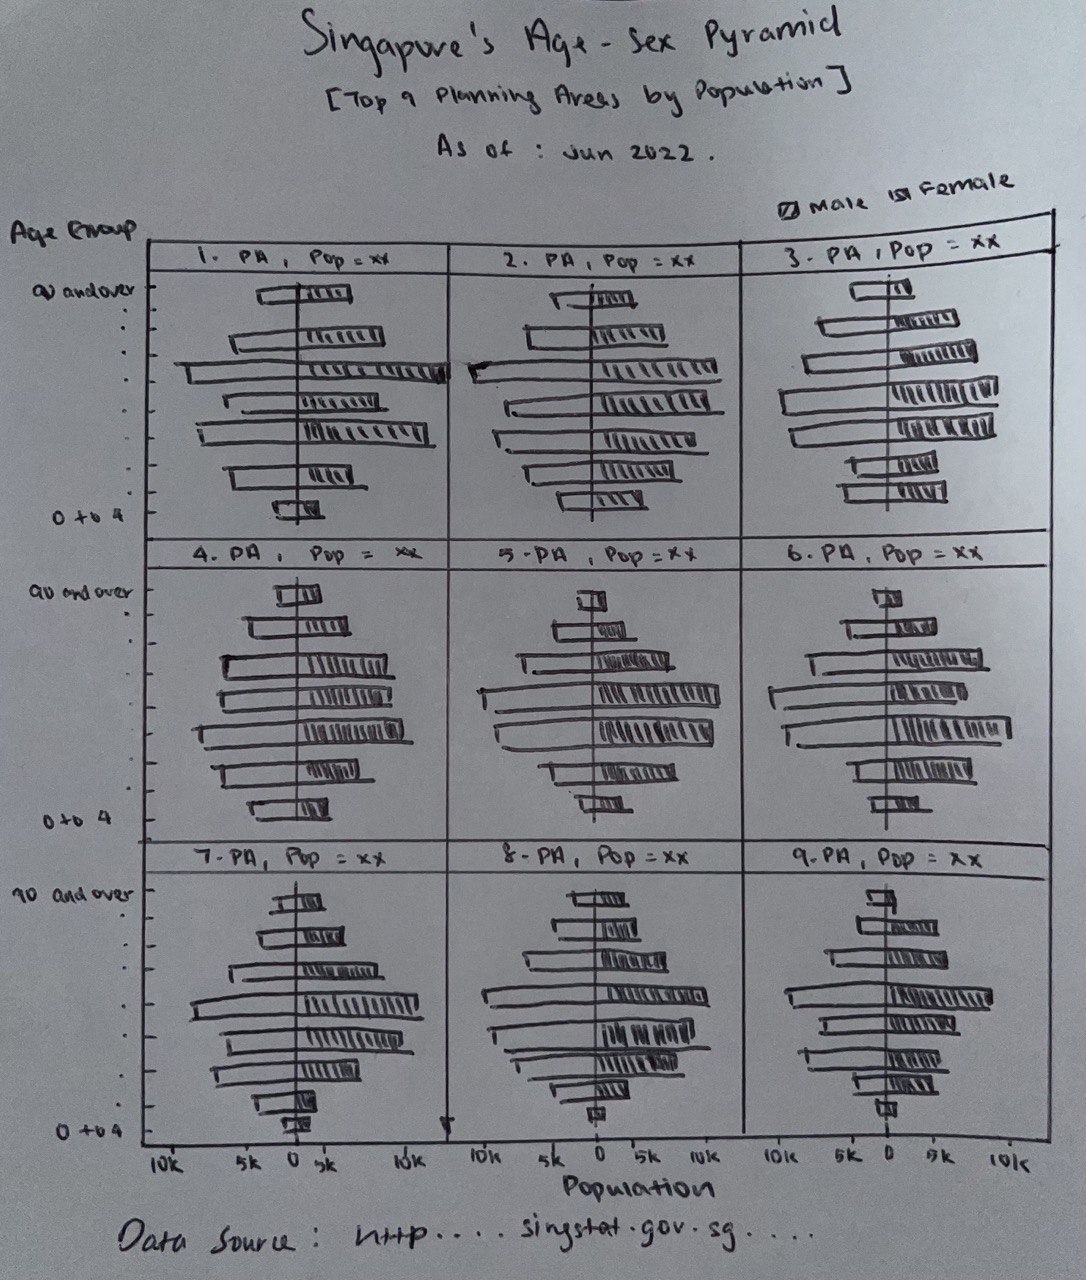 Singapore's Age - Sex Pyramid
[Top 9 Planning Areas by Population]
As of : Jun 2022.
Male Female
Age Group
1. PA, Pop = xx
2. PA, Pop = xx
3. PA, Pop = xx
90 and over
0 to 4
4. PA, Pop = xx
5. PA, Pop = xx
6. PA, Pop = xx
90 and over
0 to 4
7. PA, Pop = xx
8. PA, Pop = xx
9. PA, Pop = xx
90 and over
0 to 4
10k 5k 0 5k 10k 10k 5k 0 5k 10k 10k 5k 0 5k 10k
Population
Data Source : http.... singstat.gov.sg....